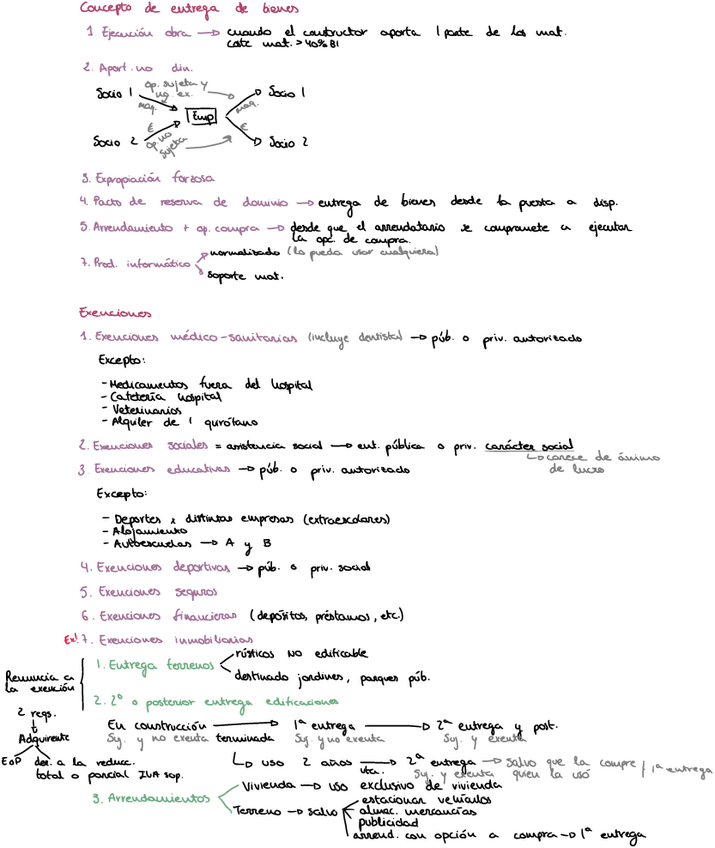 Concepto de entrega de bienes
1. Ejecución obra → cuando el constructor aporta 1 parte de los mat.
coste mat. > 40% BI
2. Aport. no din.
op. sujeta y
no ex.
Socio 1
Socio 1
maq.
maq.
Emp
€
€
Socio 2
op. no
sujeta
Socio 2
3. Expropiación forzosa
4. Pacto de reserva de dominio → entrega de bienes desde la puesta a disp.
5. Arrendamiento + op. compra → desde que el arrendatario se compromete a ejecutar
la opc. de compra.
7. Prod. informático
normalizado (la pueda usar cualquiera)
soporte mat.
Exenciones
1. Exenciones médico-sanitarias (incluye dentista) → púb. o priv. autorizado
Excepto:
- Medicamentos fuera del hospital
- Cafetería hospital
- Veterinarios
- Alquiler de 1 quirófano
2. Exenciones sociales = asistencia social → ent. pública o priv. carácter social
↳ carece de ánimo
de lucro
3. Exenciones educativas → púb. o priv. autorizado
Excepto:
- Deportes x distintas empresas (extraescolares)
- Alojamiento
- Autoescuelas → A y B
4. Exenciones deportivas → púb. o priv. social
5. Exenciones seguros
6. Exenciones financieras (depósitos, préstamos, etc.)
Ex! 7. Exenciones inmobiliarias
Renuncia a
la exención
1. Entrega terrenos
rústicos NO edificable
destinado jardines, parques púb.
2. 2ª o posterior entrega edificaciones
2 reqs.
En construcción → 1ª entrega → 2ª entrega y post.
Suj. y no exenta terminada Suj. y no exenta Suj. y exenta
Adquirente
EoP der. a la reduc.
total o parcial IVA sop.
↳ uso 2 años → 2ª entrega → salvo que la compre / 1ª entrega
vta. Suj. y exenta quien la usó
3. Arrendamientos
Vivienda → uso exclusivo de vivienda
Terreno → salvo
estacionar vehículos
almac. mercancías
publicidad
arrend. con opción a compra → 1ª entrega